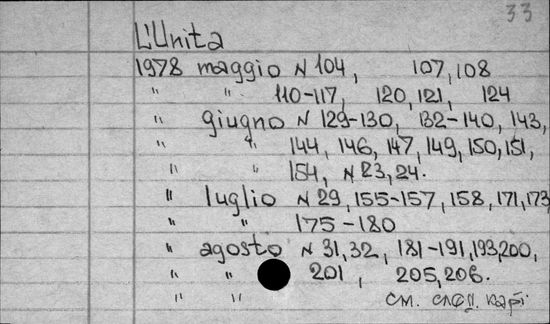 33
L'Unita
1978 maggio N 104, 107, 108
" " 110-117, 120, 121, 124
" giugno N 129-130, 132-140, 143,
" " 144, 146, 147, 149, 150, 151,
" " 154, N 23, 24.
" luglio N 29, 155-157, 158, 171, 173
" " 175-180
" agosto N 31, 32, 181-191, 193, 200,
" " 201, 205, 206.
" " см. след.